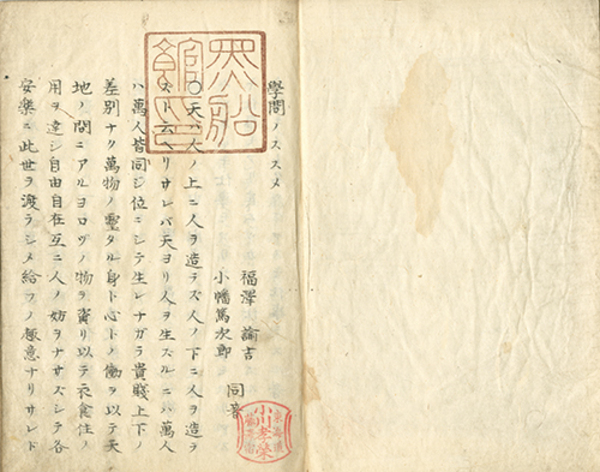 學問ノススメ
福澤諭吉
小幡篤次郎
同著
○天ハ人ノ上ニ人ヲ造ラズ人ノ下ニ人ヲ造ラ
ズト云ヘリサレバ天ヨリ人ヲ生ズルニハ萬人
ハ萬人皆同ジ位ニシテ生レナガラ貴賤上下ノ
差別ナク萬物ノ靈タル身ト心トノ働ヲ以テ天
地ノ間ニアルヨロヅノ物ヲ資リ以テ衣食住ノ
用ヲ達シ自由自在互ニ人ノ妨ヲナサズシテ各
安樂ニ此世ヲ渡ラシメ給フノ趣意ナリサレド
小川孝榮